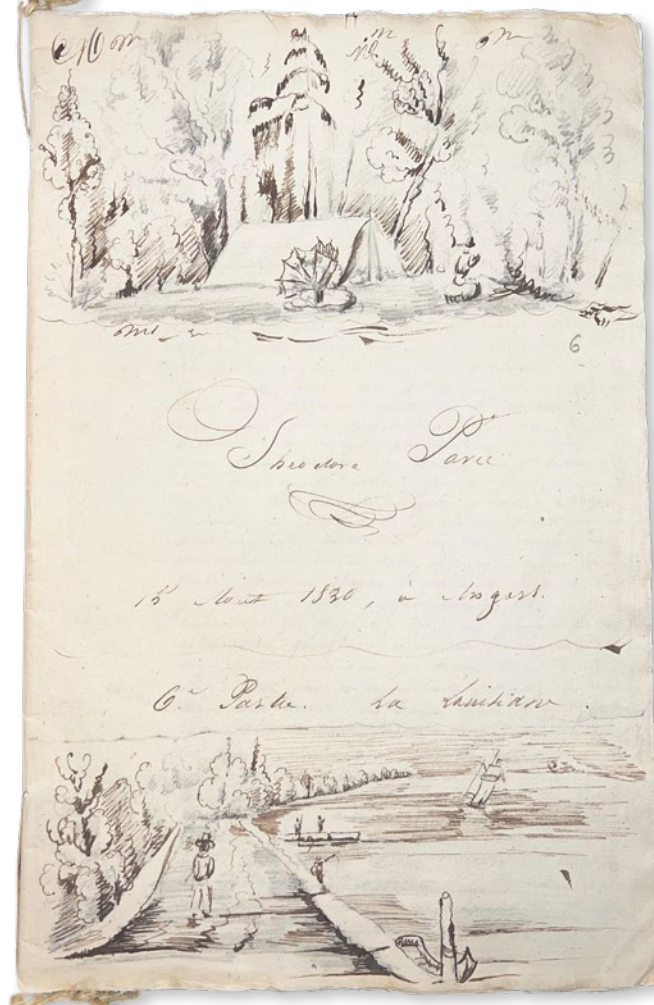 6
Theodore Pavie
15 Aout 1830, à Angers.
6.e Partie. La Louisiane.